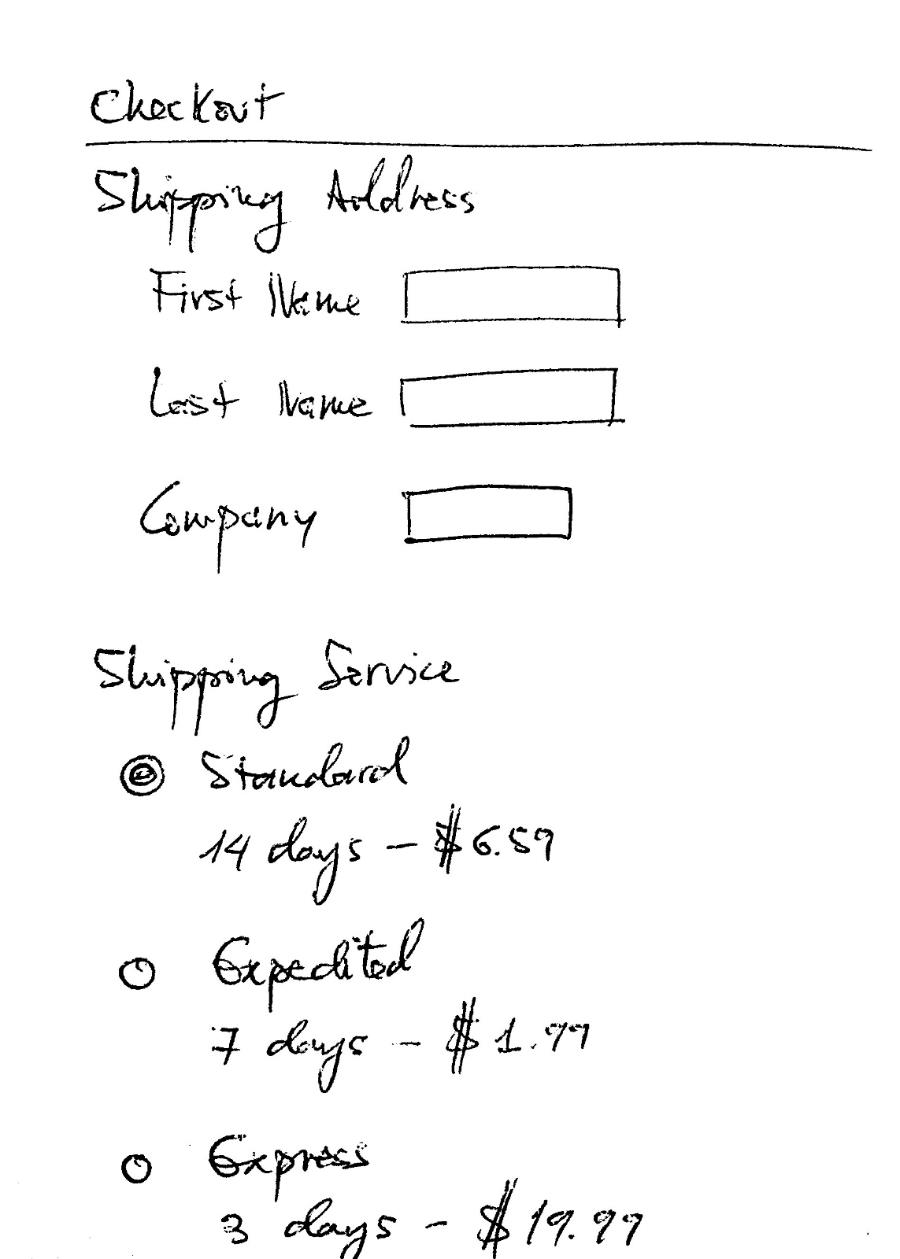 Checkout
Shipping Address
First Name
Last Name
Company
Shipping Service
Standard
14 days – $6.59
Expedited
7 days – $1.99
Express
3 days – $19.99